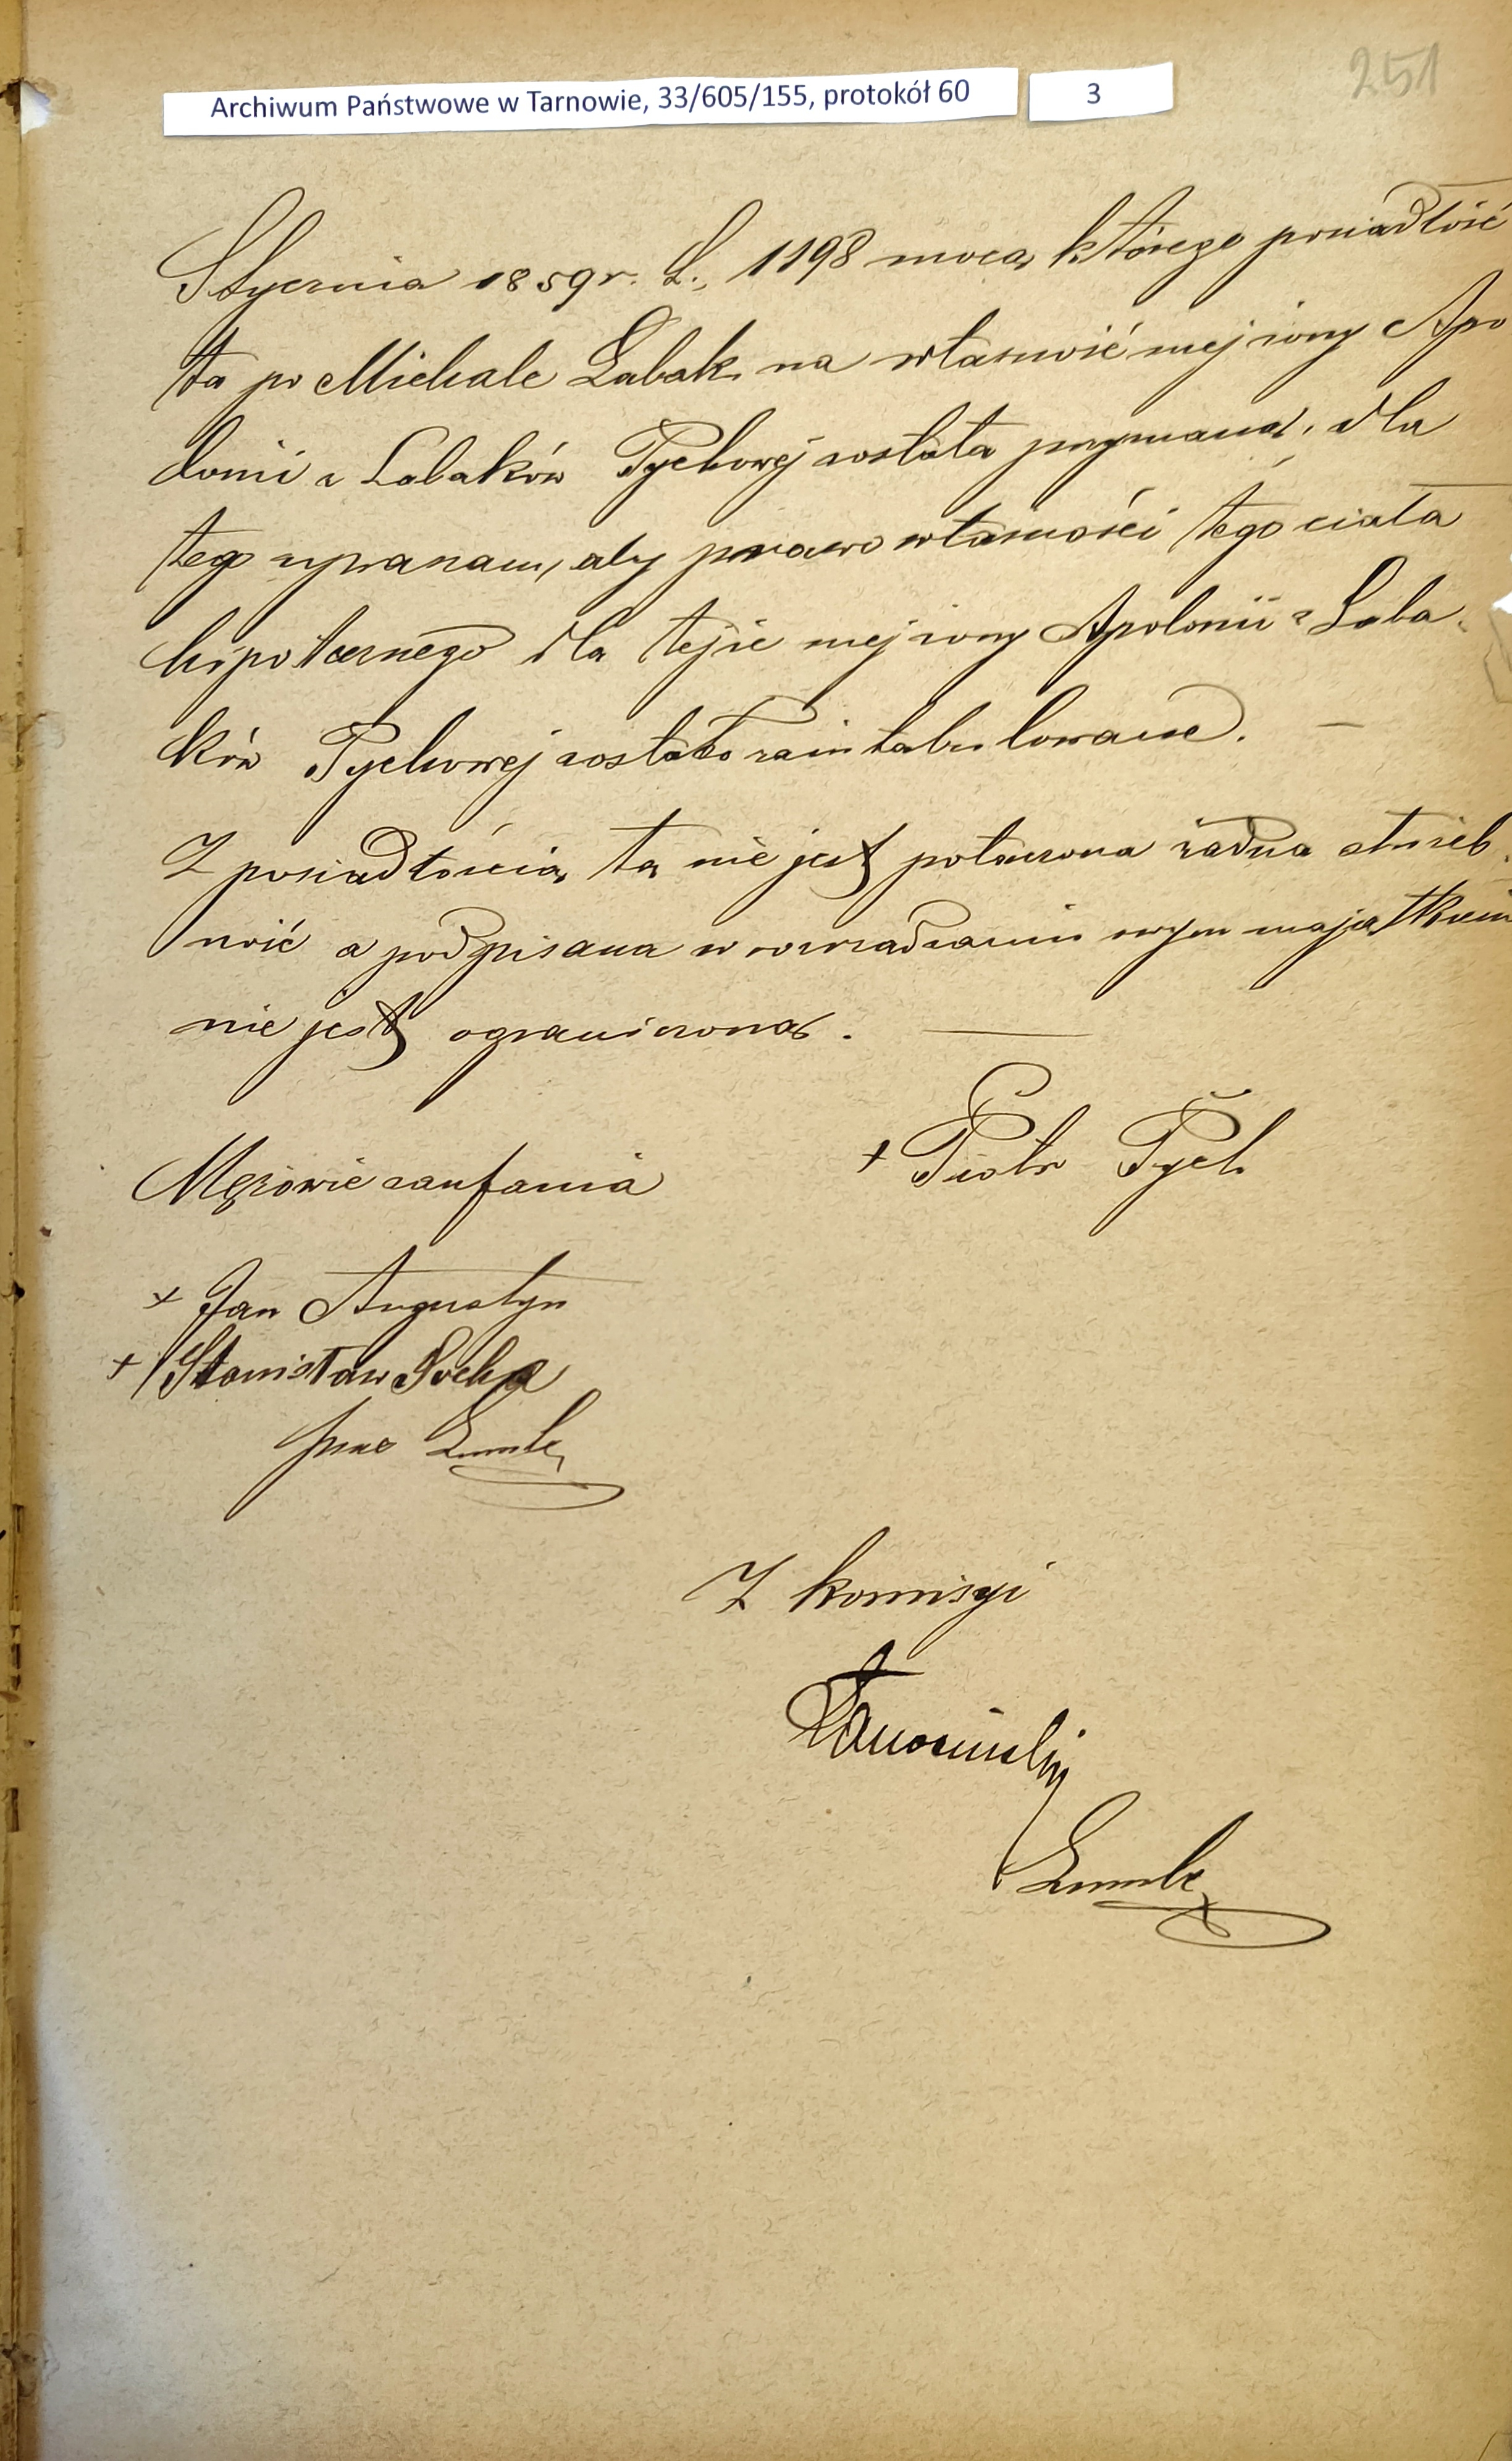 251
Archiwum Państwowe w Tarnowie, 33/605/155, protokół 60
3
Stycznia 1859 r. L. 1198 mocą którego posiadłość
ta po Michale Labak na własność mej żony Apo
lonii z Labaków Tychowej została przyznaną, dla
tego upraszam, aby prawo własności tego ciała
hipotecznego dla tejże mej żony Apolonii z Laba-
ków Tychowej zostało zaintabulowane. —
Z posiadłością tą nie jest połączona żadna służeb
ność a podpisana w rozrządzaniu swym majątkiem
nie jest ograniczoną. —
+ Piotr Tych
Mężowie zaufania
+ Jan Augustyn
+ Stanisław Socha
przez
Z komisyi